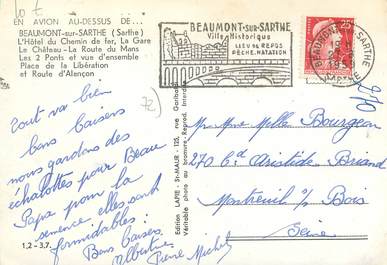 10 t
EN AVION AU-DESSUS DE...
BEAUMONT-sur-SARTHE (Sarthe)
L'Hôtel du Chemin de fer, La Gare
Le Château - La Route du Mans
Les 2 Ponts et vue d'ensemble
Place de la Libération
et Route d'Alençon
BEAUMONT-SUR-SARTHE
Ville Historique
LIEU de REPOS
PÊCHE. NATATION
BEAUMONT S SARTHE
1959
SARTHE
25F
72
Tout va bien
bons baisers
nous gardons des
échalottes pour Beau
Papa pour la
semence elles sont
formidables!
Bons baisers
Albertine
Pierre Michel
1,2 - 3.7.
Edition LAPIE - St-MAUR - 125, rue Garibal
Véritable photo au bromure - Reprod. Interd.
Mr Mme Melle Bourgeon
270 Bd Aristide Briand
Montreuil s/ Bois
Seine